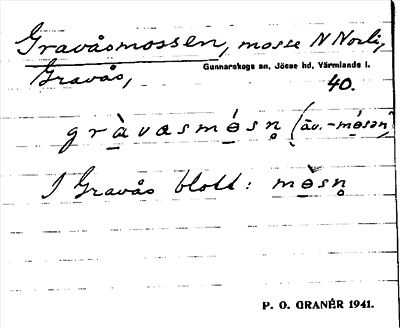 Gravåsmossen, mosse N Norli,
Gravås, Gunnarskogs sn, Jösse hd, Värmlands l.
40.
gràvasmǿsn̥ (äv. -mǿsən)
I Gravås blott: mø̀sn̥
P. O. GRANÉR 1941.